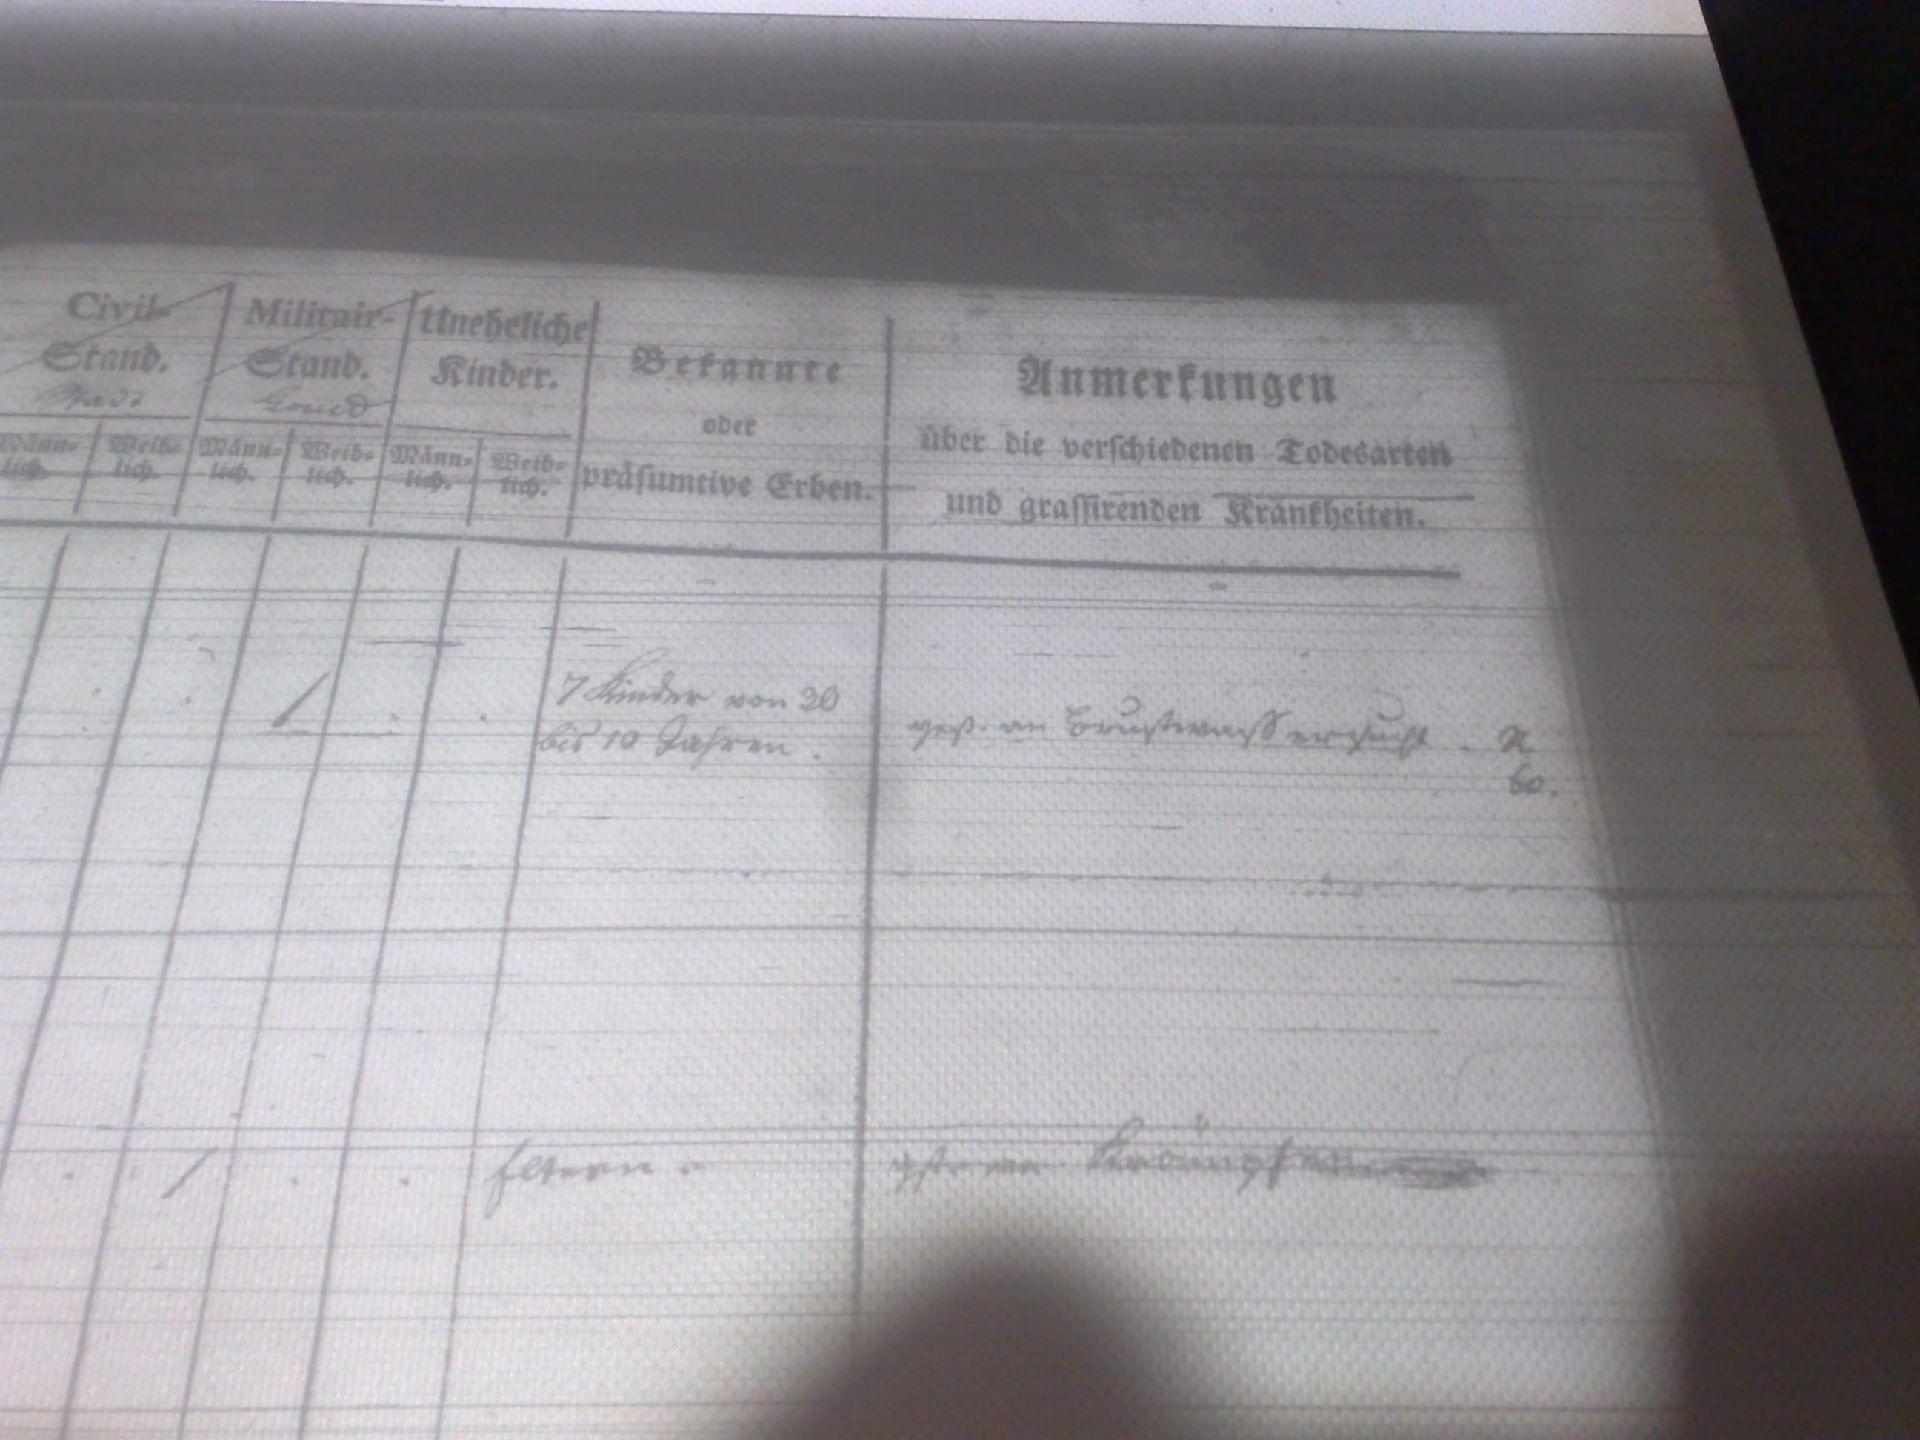 Civil-
Stand.
Stadt
Militair-
Stand.
Land
Uneheliche
Kinder.
Bekannte
oder
präsumtive Erben.
Anmerkungen
über die verschiedenen Todesarten
und grassirenden Krankheiten.
Männ-
lich.
Weib-
lich.
Männ-
lich.
Weib-
lich.
Männ-
lich.
Weib-
lich.
7 Kinder von 30
bis 10 Jahren.
gest. an Brustwassersucht.
60.
Eltern.
an Krämpfen